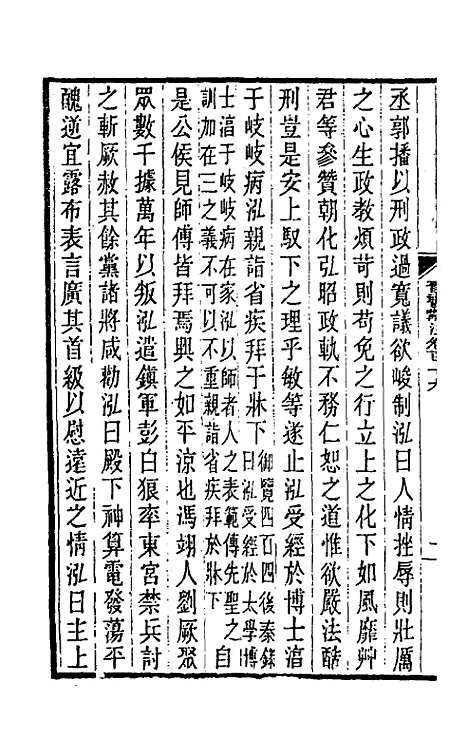 丞郭播以刑政過寬議欲峻制泓曰人情挫辱則壯厲
之心生政教煩苛則苟免之行立上之化下如風靡艸
君等參贊朝化弘昭政軌不務仁恕之道惟欲嚴法酷
刑豈是安上馭下之理乎敏等遂止泓受經於博士淳
于岐岐病泓親詣省疾拜于牀下御覽四百四後秦錄曰泓受經於太學博
士淳于岐岐病在家泓以師者人之表範傳先聖之訓加在三之義不可以不重親詣省疾拜於牀下自
是公侯見師傅皆拜焉興之如平涼也馮翊人劉厥聚
眾數千據萬年以叛泓遣鎮軍彭白狼率東宮禁兵討
之斬厥赦其餘黨諸將咸勸泓曰殿下神算電發蕩平
醜逆宜露布表言廣其首級以慰遠近之情泓曰主上